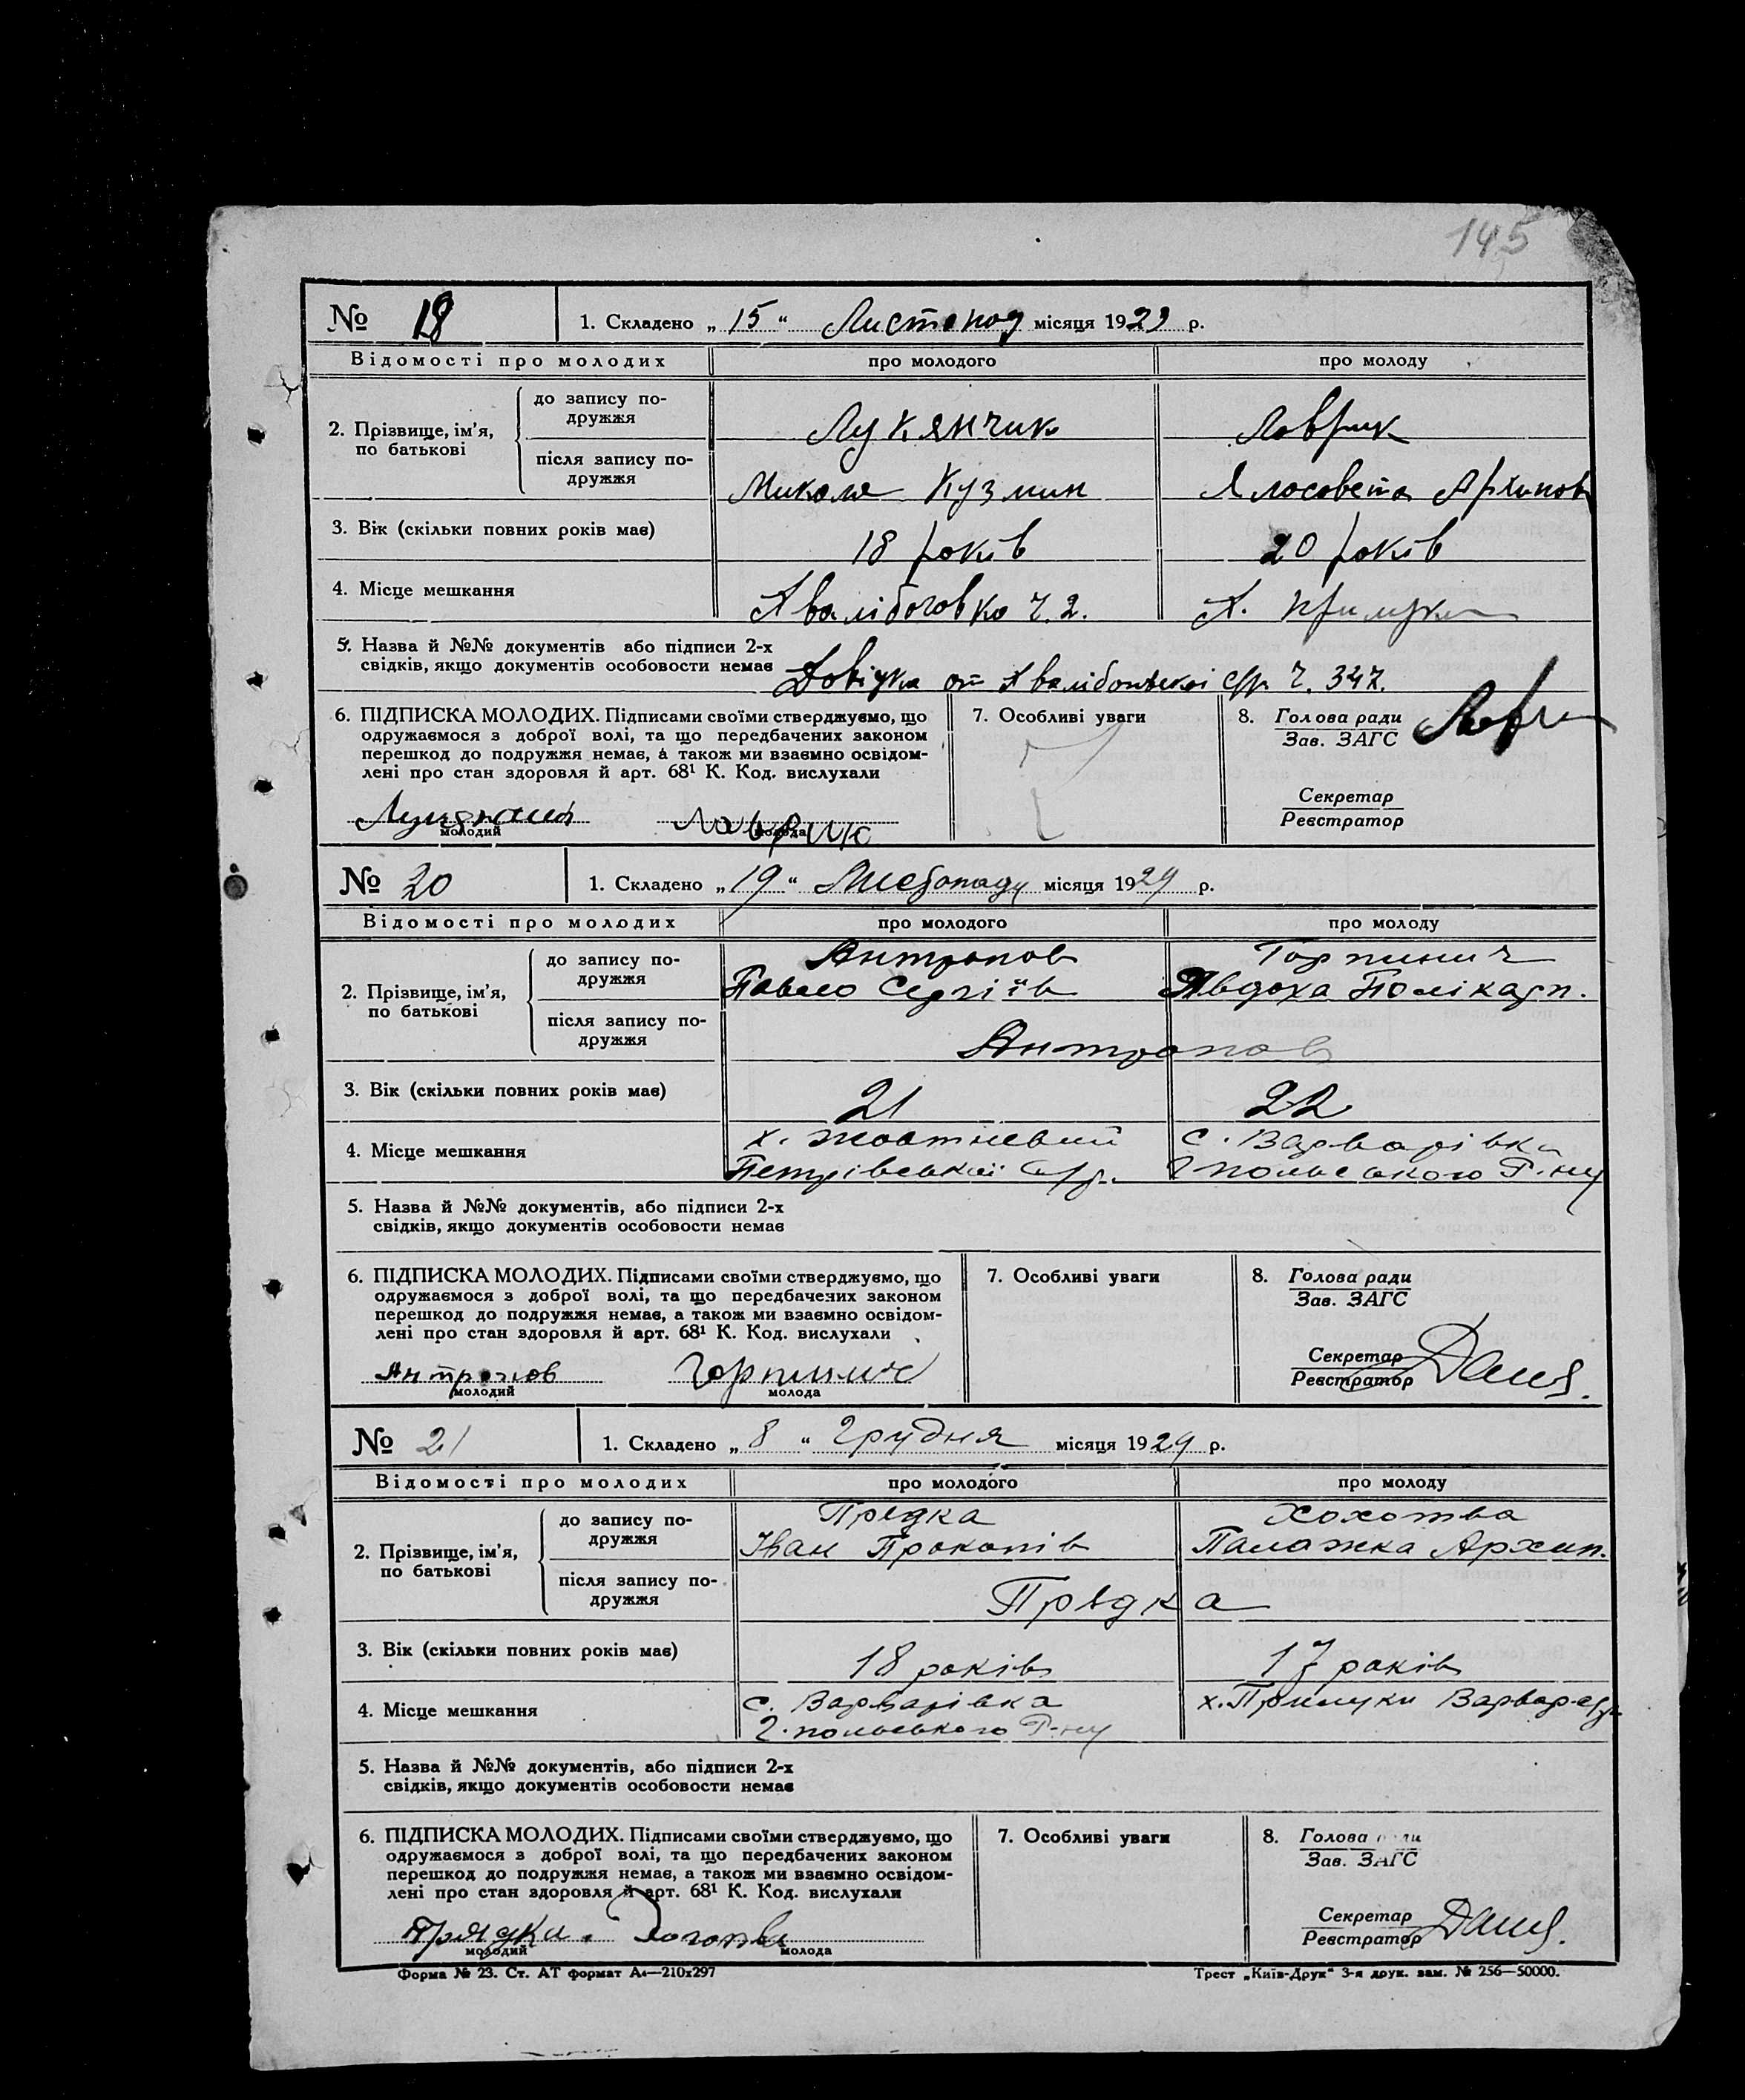 145
№ 18 1. Складено „15“ Листопад місяця 1929 р.
Відомості про молодих про молодого про молоду
2. Прізвище, ім’я, по батькові
до запису подружжя Лукянчик Лаврик
після запису по-дружжя Микола Кузмин Ялосовета Архипов
3. Вік (скільки повних років має) 18 років 20 років
4. Місце мешкання Хвалібоговка ч. 2. Х. Прилуки
5. Назва й №№ документів або підписи 2-х
свідків, якщо документів особовости немає Довідка от с/р ч. 347.
6. ПІДПИСКА МОЛОДИХ. Підписами своїми стверджуємо, що
одружаємося з доброї волі, та що передбачених законом
перешкод до подружжя немає, а також ми взаємно освідом-
лені про стан здоровля й арт. 68¹ К. Код. вислухали
7. Особливі уваги
8. Голова ради
Зав. ЗАГС
Секретар
Реєстратор
Лаврик
молодий молода
№ 20 1. Складено „19“ Листопаду місяця 1929 р.
Відомості про молодих про молодого про молоду
2. Прізвище, ім’я,
по батькові
до запису по-
дружжя
Антропов Горпинич
Павло Сергіїв Явдоха Полікарп.
після запису по-
дружжя
Антропов
3. Вік (скільки повних років має) 21 22
4. Місце мешкання
х. Жовтневий с. Варварівка
Петрівської с/р. Г польського Р-ну
5. Назва й №№ документів, або підписи 2-х
свідків, якщо документів особовости немає
6. ПІДПИСКА МОЛОДИХ. Підписами своїми стверджуємо, що
одружаємося з доброї волі, та що передбачених законом
перешкод до подружжя немає, а також ми взаємно освідом-
лені про стан здоровля й арт. 68¹ К. Код. вислухали
7. Особливі уваги
8. Голова ради
Зав. ЗАГС
Секретар
Реєстратор
Антропов Горпинич
молодий молода
№ 21 1. Складено „8“ Грудня місяця 1929 р.
Відомості про молодих про молодого про молоду
2. Прізвище, ім’я,
по батькові
до запису по-
дружжя
Прядка Хохотва
Іван Прокопів Палажка Архип.
після запису по-
дружжя
Прядка
3. Вік (скільки повних років має) 18 років 17 років
4. Місце мешкання
с. Варварівка х. Прилуки Варвар. с/р.
Г. польського Р-ну
5. Назва й №№ документів, або підписи 2-х
свідків, якщо документів особовости немає
6. ПІДПИСКА МОЛОДИХ. Підписами своїми стверджуємо, що
одружаємося з доброї волі, та що передбачених законом
перешкод до подружжя немає, а також ми взаємно освідом-
лені про стан здоровля й арт. 68¹ К. Код. вислухали
7. Особливі уваги
8. Голова ради
Зав. ЗАГС
Секретар
Реєстратор
Прядка. Хохотва
молодий молода
Форма № 23. Ст. АТ формат А4—210х297 Трест „Київ-Друк“ 3-я друк. зам. № 256—50000.